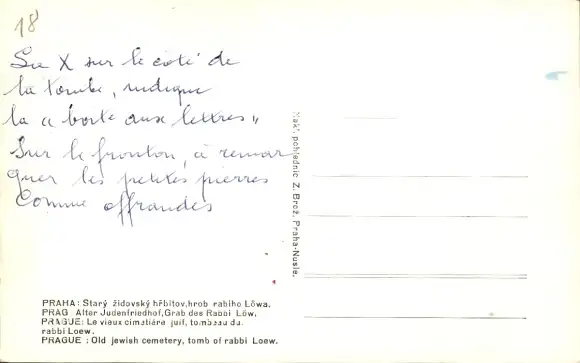 18
Su X sur le coté de
la tombe, indique
la « boite aux lettres »
Sur le fronton, à remar
quer les petites pierres
comme offrandes
Nakl. pohlednic Z. Brož, Praha-Nusle.
PRAHA: Starý židovský hřbitov,hrob rabiho Löwa.
PRAG Alter Judenfriedhof,Grab des Rabbi Löw.
PRAGUE: Le vieux cimetière juif, tombeau du
rabbi Loew.
PRAGUE : Old jewish cemetery, tomb of rabbi Loew.